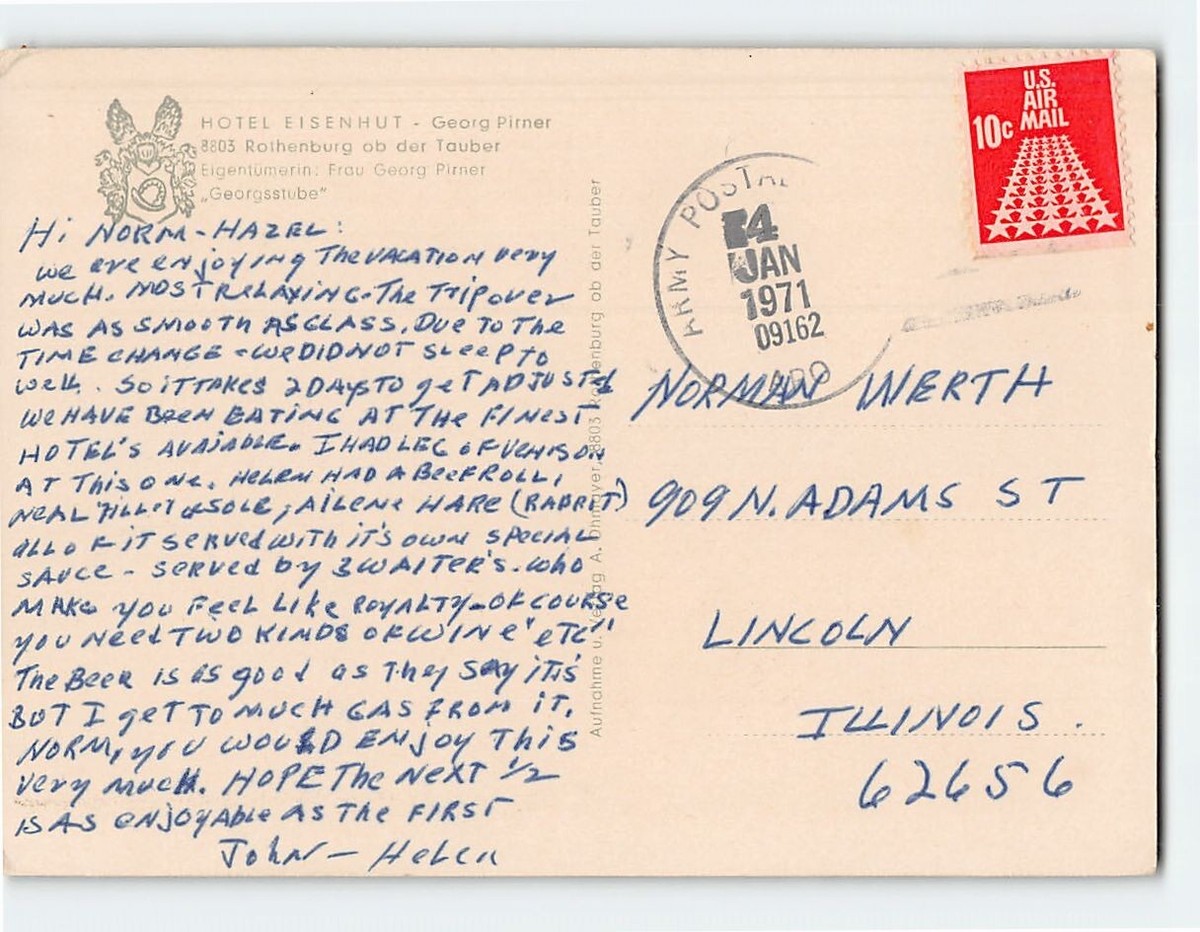 HOTEL EISENHUT - Georg Pirner
8803 Rothenburg ob der Tauber
Eigentümerin: Frau Georg Pirner
„Georgsstube"
Hi NORM - HAZEL:
we are enjoying The VACATION very
much. MOST RELAXING. The Trip over
WAS AS SMOOTH AS GLASS. DUE TO THE
TIME CHANGE - WE DID NOT SLEEP TO
well. SO IT TAKES 2 DAYS TO get ADJUSTED
WE HAVE BEEN EATING AT THE FINEST
HOTEL'S AVAIABLE. I HAD LEG OF VENISON
AT This ONE. HELEN HAD A BEEF ROLL,
NEAL FILLIT of SOLE, AILENE HARE (RABBIT)
ALL OF IT SERVED WITH IT'S OWN SPECIAL
SAUCE - SERVED by 3 WAITER'S. who
MAKE YOU FEEL LIKE ROYALTY - OF COURSE
YOU NEED TWO KINDS OF WINE "ETC"
The BEER IS AS good as They SAY IT'S
BUT I get TO MUCH GAS FROM IT.
NORM, YOU WOULD ENJOY THIS
very much. HOPE The NEXT 1/2
IS AS ENJOYABLE AS The FIRST
John - Helen
Aufnahme u. Verlag A. Ohmayer, 8803 Rothenburg ob der Tauber
U.S.
AIR
MAIL
10c
ARMY POSTAL
4
JAN
1971
09162
APO
NORMAN WERTH
909 N. ADAMS ST
LINCOLN
ILLINOIS.
62656